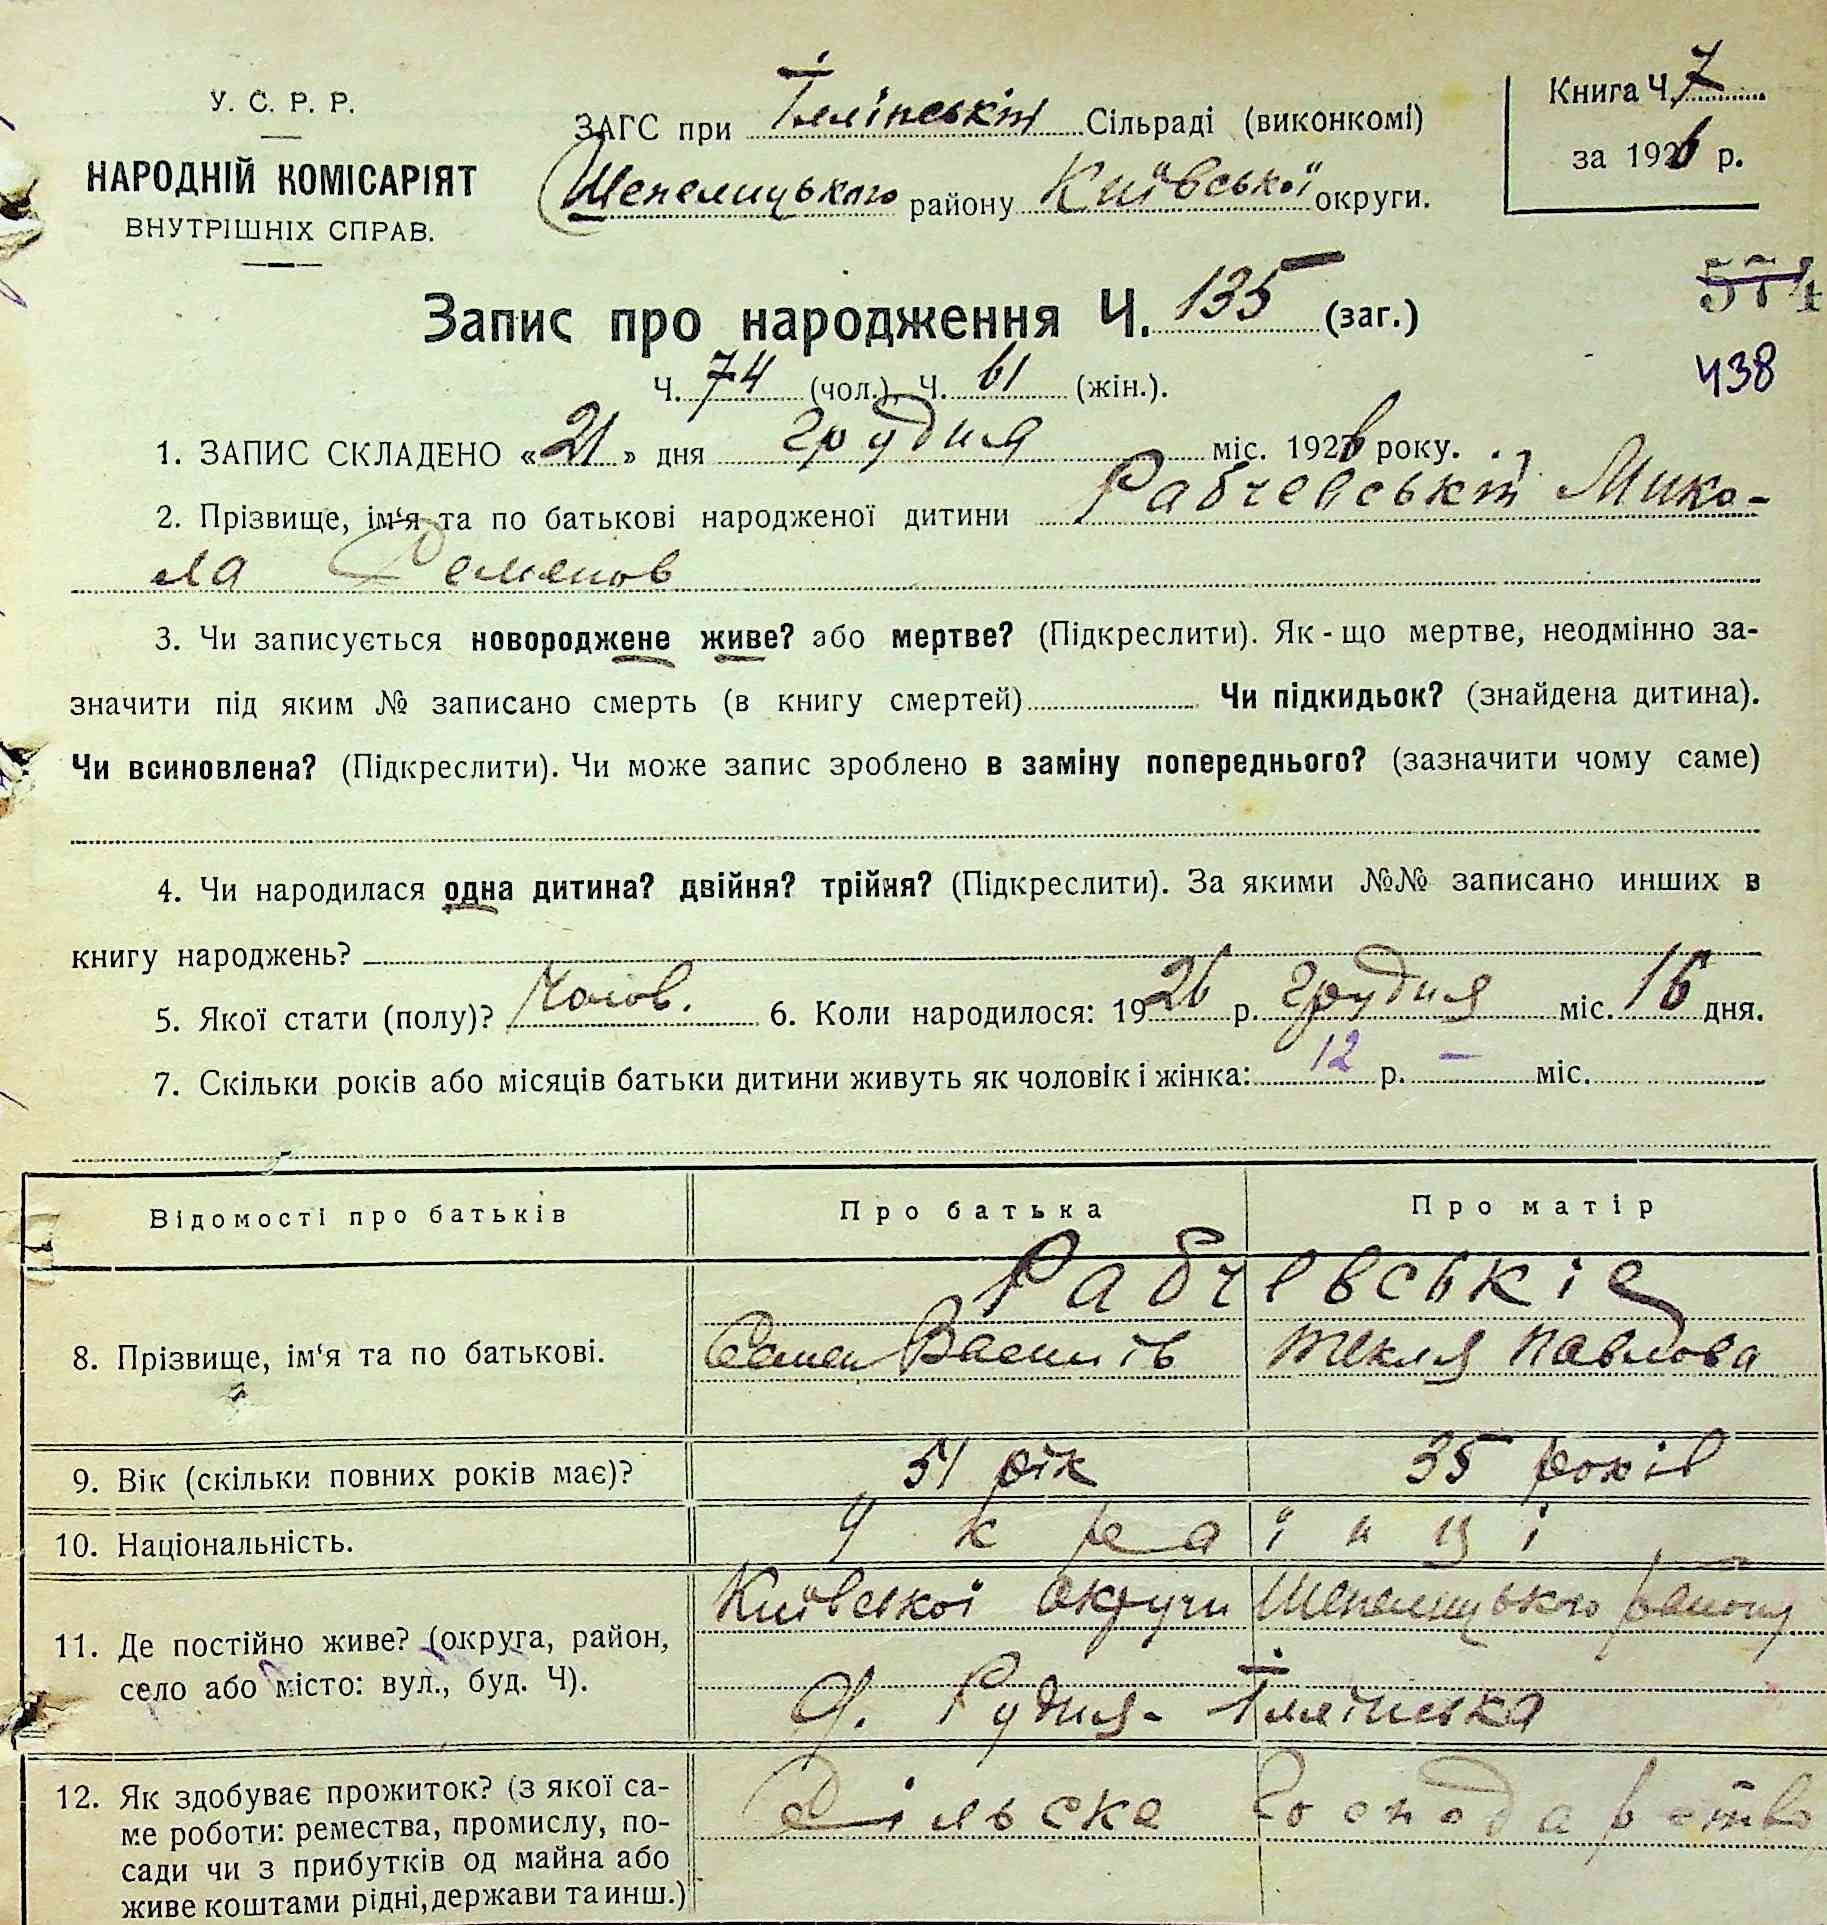 У. С. Р. Р.
НАРОДНІЙ КОМІСАРІЯТ
ВНУТРІШНІХ СПРАВ.
ЗАГС при Іллінській Сільраді (виконкомі)
Шепелицького району Київської округи.
Книга Ч. 7
за 1926 р.
Запис про народження Ч. 135 (заг.)
574
Ч. 74 (чол.), Ч. 61 (жін.).
438
1. ЗАПИС СКЛАДЕНО «21» дня грудня міс. 1926 року.
2. Прізвище, ім‘я та по батькові народженої дитини Рабчевський Мико-
ла Семенов
3. Чи записується новороджене живе? або мертве? (Підкреслити). Як-що мертве, неодмінно за-
значити під яким № записано смерть (в книгу смертей) Чи підкидьок? (знайдена дитина).
Чи всиновлена? (Підкреслити). Чи може запис зроблено в заміну попереднього? (зазначити чому саме)
4. Чи народилася одна дитина? двійня? трійня? (Підкреслити). За якими №№ записано инших в
книгу народжень?
5. Якої стати (полу)? Чолов. 6. Коли народилося: 1926 р. грудня міс. 16 дня.
7. Скільки років або місяців батьки дитини живуть як чоловік і жінка: 12 р. — міс.
Відомості про батьків Про батька Про матір
Рабчевські
8. Прізвище, ім‘я та по батькові. Семен Василів Текля Павлова
9. Вік (скільки повних років має)? 51 рік 35 років
10. Національність. Українці
11. Де постійно живе? (округа, район,
село або місто: вул., буд. Ч).
Київської округи Шепелицького району
с. Рудня-Іллінська
12. Як здобуває прожиток? (з якої са-
ме роботи: ремества, промислу, по-
сади чи з прибутків од майна або
живе коштами рідні, держави та инш.)
Сільське господарство